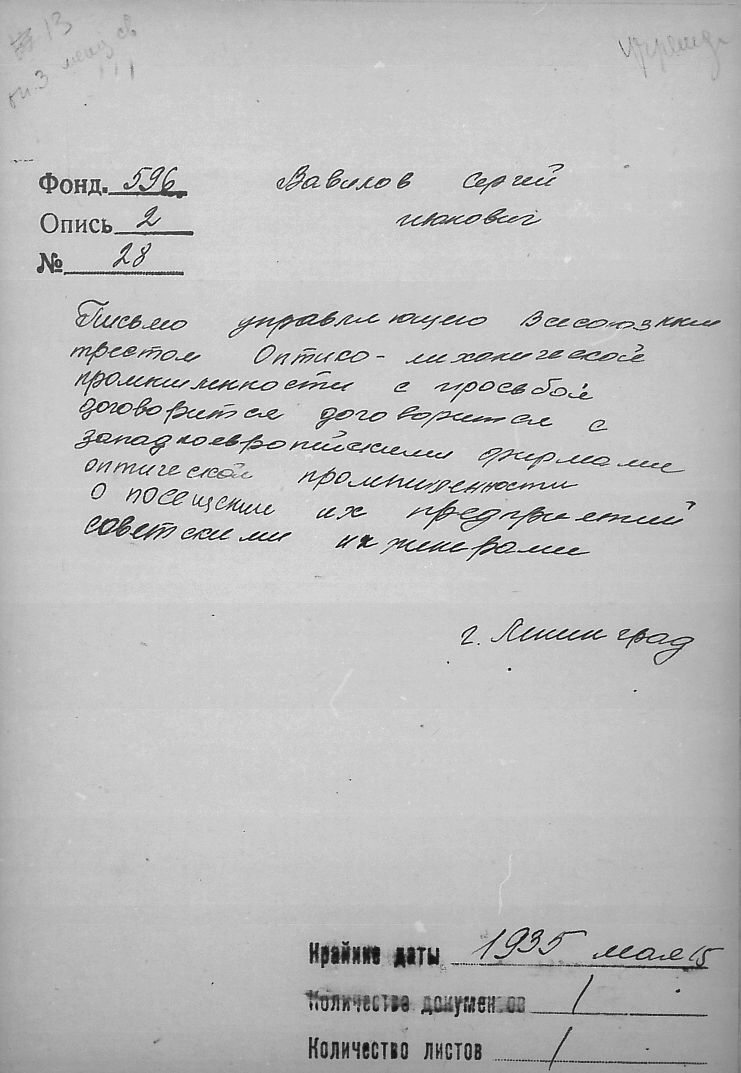 13
оп. 3
учрежд
Фонд. 596
Вавилов Сергей
Иванович
Опись 2
№ 28
Письмо управляющего Всесоюзным
трестом Оптико-механической
промышленности с просьбой
договорится договорится с
западноевропейскими фирмами
оптической промышленности
о посещении их предприятий
советскими инженерами
г. Ленинград
Крайние даты 1935 мая 15
Количество документов 1
Количество листов 1